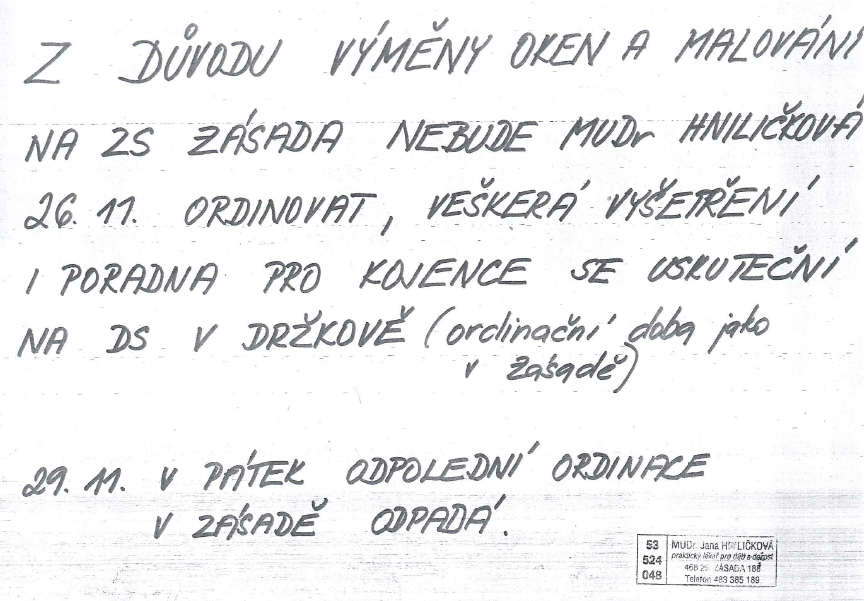 Z DŮVODU VÝMĚNY OKEN A MALOVÁNÍ
NA ZS ZÁSADA NEBUDE MUDr HNILIČKOVÁ
26. 11. ORDINOVAT, VEŠKERÁ VYŠETŘENÍ
I PORADNA PRO KOJENCE SE USKUTEČNÍ
NA DS V DRŽKOVĚ (ordinační doba jako
v Zásadě)
29. 11. V PÁTEK ODPOLEDNÍ ORDINACE
V ZÁSADĚ ODPADÁ.
53
524
048
MUDr. Jana HNILIČKOVÁ
praktický lékař pro děti a dorost
468 25 ZÁSADA 188
Telefon 483 385 189